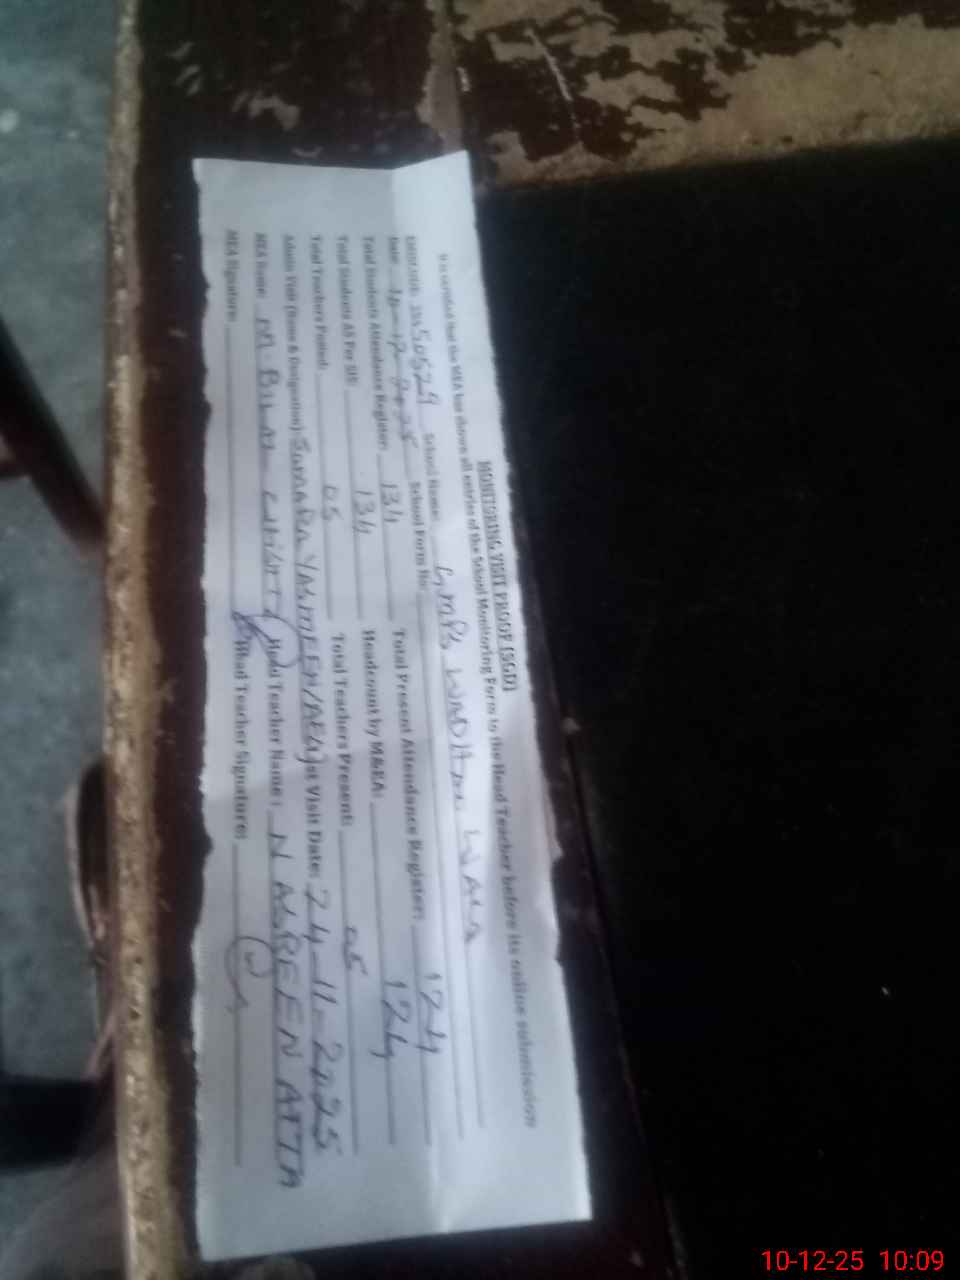 MONITORING VISIT PROOF (SGD)
It is certified that the MEA has shown all entries of the School Monitoring Form to the Head Teacher before its online submission
School Name: GMPS WADHAI WALA
Date: 10-12-2025 School Form No:
Total Students Attendance Register: 134 Total Present Attendance Register: 124
Total Students AS Per SIS: 134 Headcount by M&EA: 124
Total Teachers Posted: 05 Total Teachers Present: 05
Admin Visit (Name & Designation): SUMARA YASMEEN/AEO Visit Date: 24-11-2025
MEA Name: M. BILAL CHISHTI Head Teacher Name: NASREEN ATTA
MEA Signature: Head Teacher Signature:
10-12-25 10:09